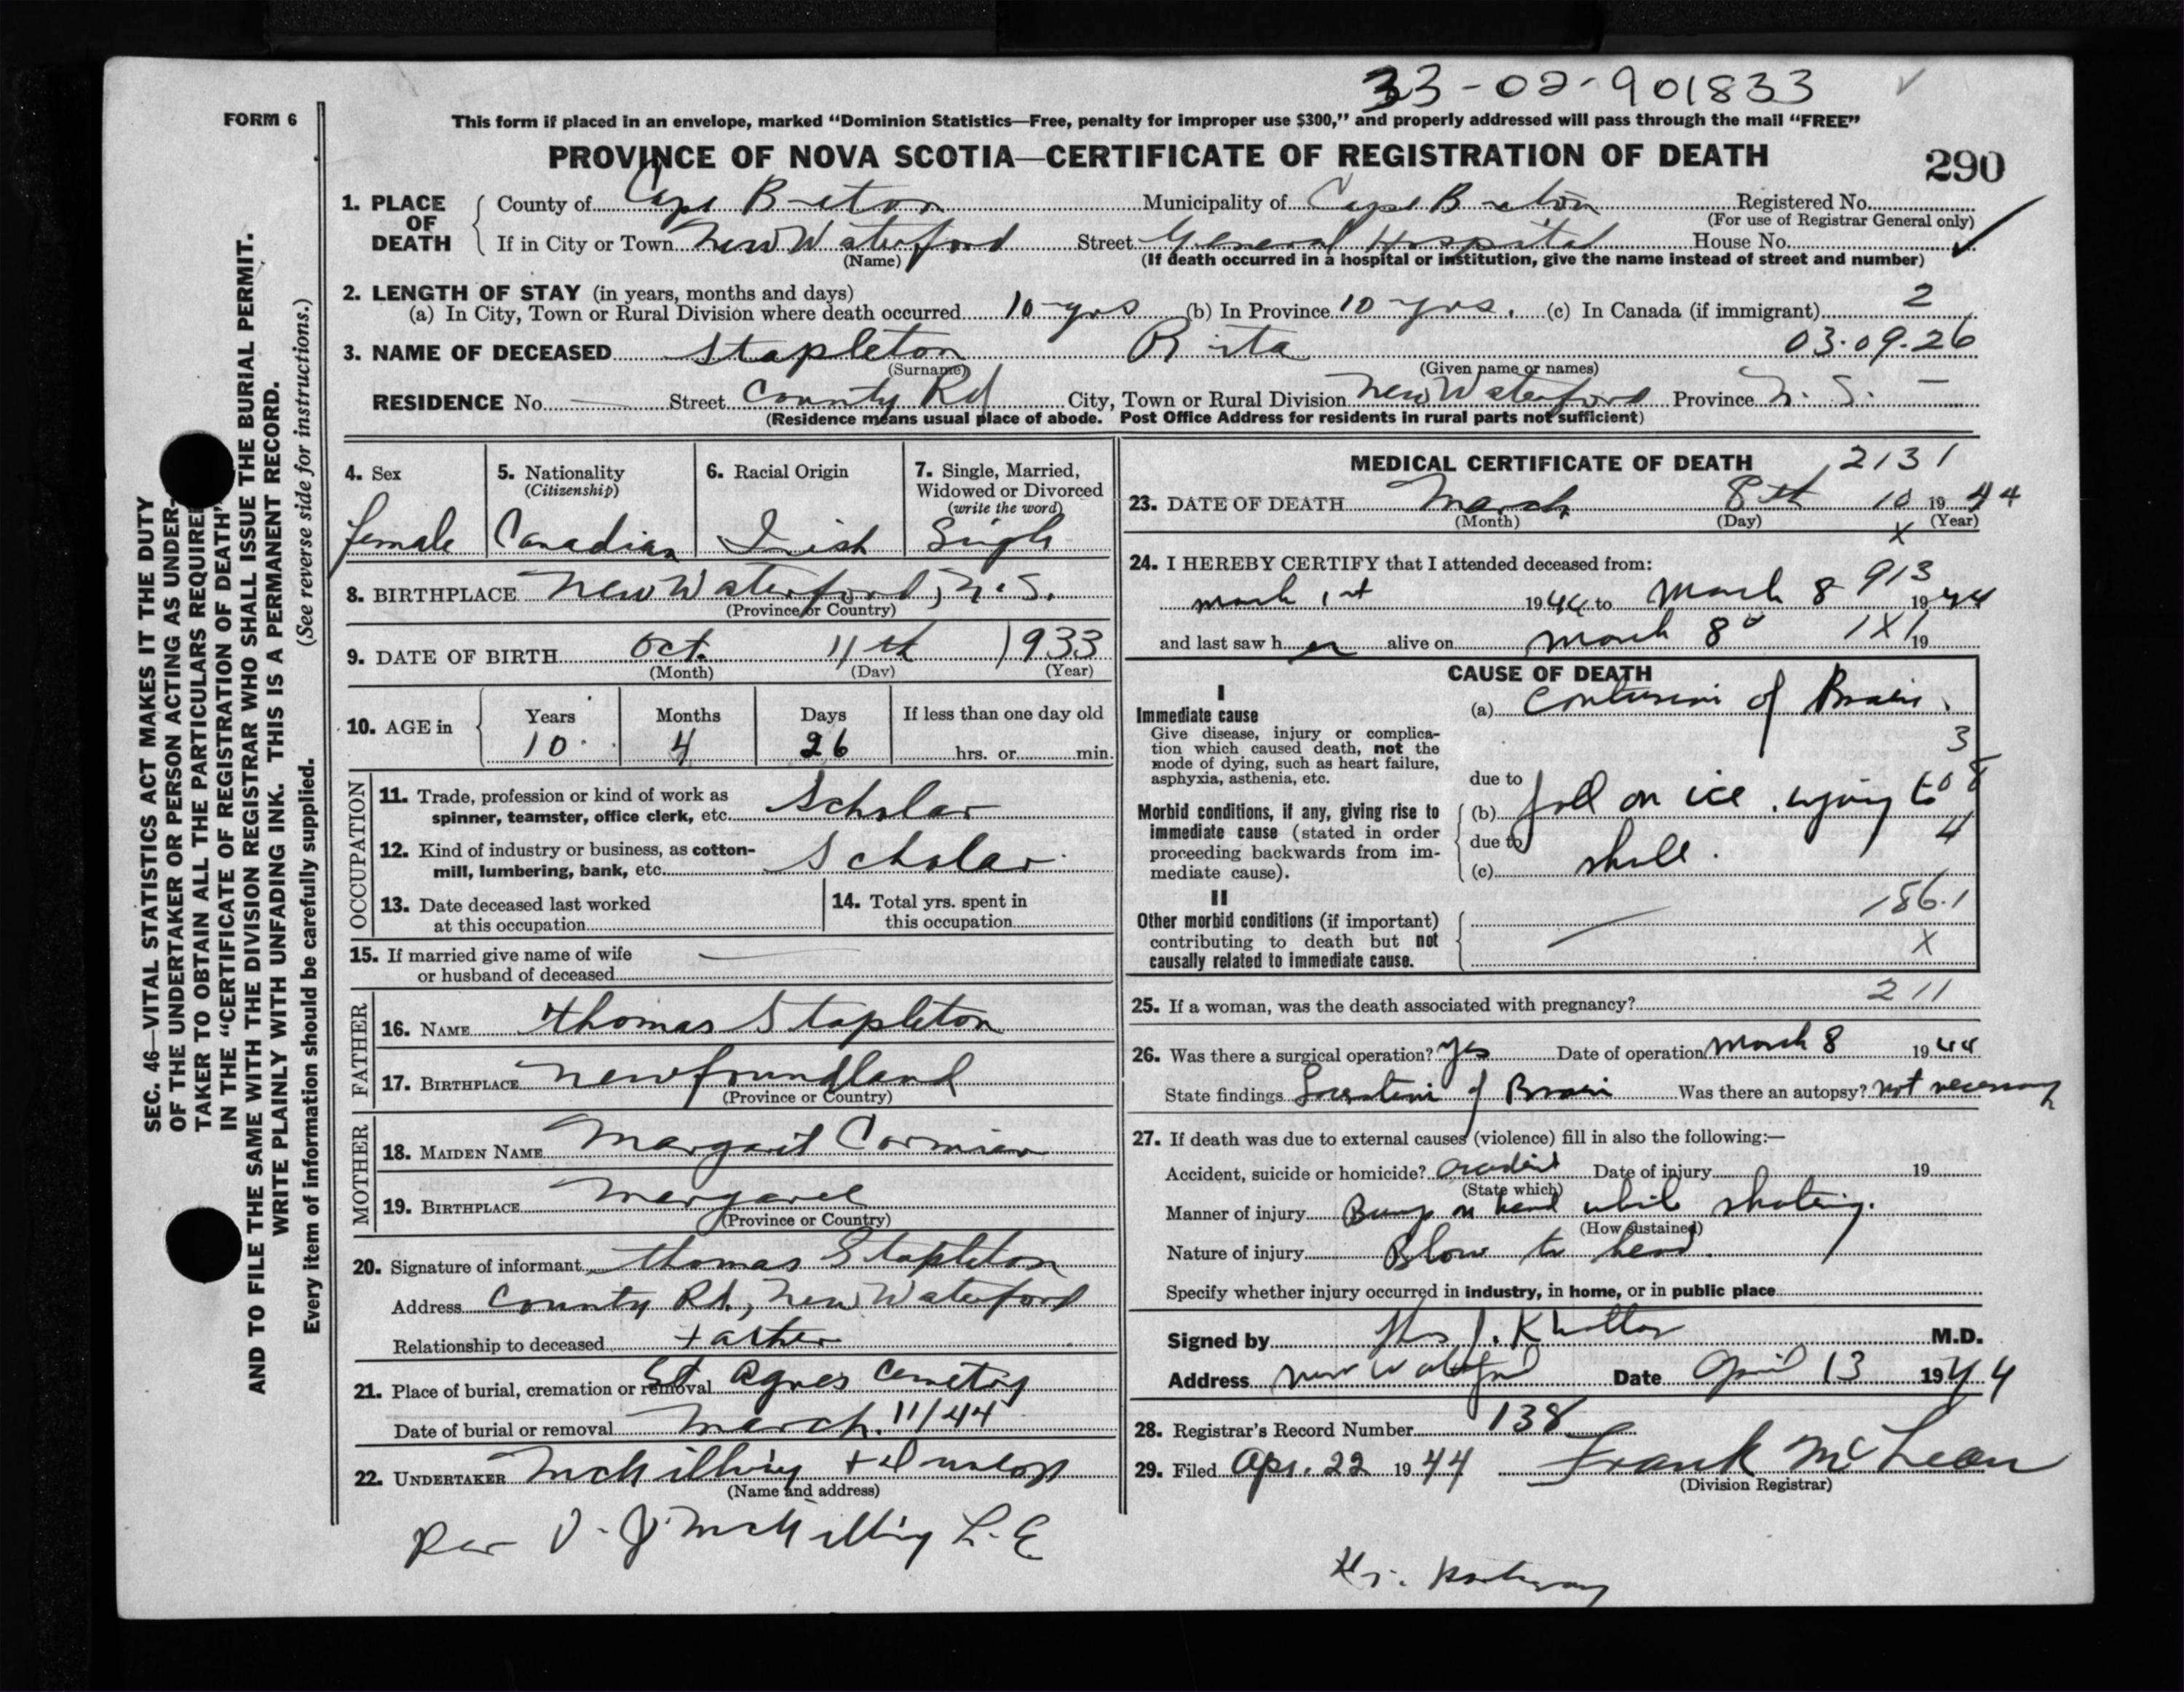 33-02-901833
FORM 6
This form if placed in an envelope, marked “Dominion Statistics—Free, penalty for improper use $300,” and properly addressed will pass through the mail “FREE”
PROVINCE OF NOVA SCOTIA—CERTIFICATE OF REGISTRATION OF DEATH
290
1. PLACE OF DEATH
County of Cape Breton Municipality of Cape Breton Registered No.
(For use of Registrar General only)
If in City or Town New Waterford Street General Hospital House No.
(Name) (If death occurred in a hospital or institution, give the name instead of street and number)
2. LENGTH OF STAY (in years, months and days)
(a) In City, Town or Rural Division where death occurred 10 yrs (b) In Province 10 yrs. (c) In Canada (if immigrant) 2
3. NAME OF DECEASED Stapleton Rita 03.09.26
(Surname) (Given name or names)
RESIDENCE No. — Street County Rd City, Town or Rural Division New Waterford Province N. S. —
(Residence means usual place of abode. Post Office Address for residents in rural parts not sufficient)
4. Sex
female
5. Nationality
(Citizenship)
Canadian
6. Racial Origin
Irish
7. Single, Married,
Widowed or Divorced
(write the word)
Single
8. BIRTHPLACE New Waterford, N. S.
(Province or Country)
9. DATE OF BIRTH Oct. 11th 1933
(Month) (Day) (Year)
10. AGE in
Years Months Days If less than one day old
10 4 26 hrs. or min.
OCCUPATION
11. Trade, profession or kind of work as
spinner, teamster, office clerk, etc. Scholar
12. Kind of industry or business, as cotton-
mill, lumbering, bank, etc. Scholar
13. Date deceased last worked
at this occupation
14. Total yrs. spent in
this occupation
15. If married give name of wife
or husband of deceased —
FATHER
16. NAME Thomas Stapleton
17. BIRTHPLACE Newfoundland
(Province or Country)
MOTHER
18. MAIDEN NAME Margaret Cormier
19. BIRTHPLACE Margaree
(Province or Country)
20. Signature of informant Thomas Stapleton
Address County Rd, New Waterford
Relationship to deceased Father
21. Place of burial, cremation or removal St Agnes Cemetry
Date of burial or removal March 11/44
22. UNDERTAKER + Dunlop
(Name and address)
Per V. J. L. E.
MEDICAL CERTIFICATE OF DEATH 2131
23. DATE OF DEATH March 8th 10 1944
(Month) (Day) (Year)
X
24. I HEREBY CERTIFY that I attended deceased from:
913
March 1st 1944 to March 8 1944
and last saw her alive on March 8 1X1 19
CAUSE OF DEATH
I
Immediate cause
Give disease, injury or complica-
tion which caused death, not the
mode of dying, such as heart failure,
asphyxia, asthenia, etc.
(a) Contusion of Brain.
3
due to
8
Morbid conditions, if any, giving rise to
immediate cause (stated in order
proceeding backwards from im-
mediate cause).
(b) fall on ice. injury to
due to
4
(c) skull.
II
186.1
Other morbid conditions (if important)
contributing to death but not
causally related to immediate cause.
X
25. If a woman, was the death associated with pregnancy? 211
26. Was there a surgical operation? Yes Date of operation March 8 1944
State findings of Brain Was there an autopsy? not necessary
27. If death was due to external causes (violence) fill in also the following:—
Accident, suicide or homicide? accident Date of injury 19
(State which)
Manner of injury Bump on head while skating.
(How sustained)
Nature of injury Blow to head.
Specify whether injury occurred in industry, in home, or in public place
Signed by M.D.
Address New Waterford Date April 13 1944
28. Registrar's Record Number 138
29. Filed Apr. 22 1944 Frank McLean
(Division Registrar)
SEC. 46—VITAL STATISTICS ACT MAKES IT THE DUTY
OF THE UNDERTAKER OR PERSON ACTING AS UNDER-
TAKER TO OBTAIN ALL THE PARTICULARS REQUIRED
IN THE “CERTIFICATE OF REGISTRATION OF DEATH”
AND TO FILE THE SAME WITH THE DIVISION REGISTRAR WHO SHALL ISSUE THE BURIAL PERMIT.
WRITE PLAINLY WITH UNFADING INK. THIS IS A PERMANENT RECORD.
Every item of information should be carefully supplied. (See reverse side for instructions.)